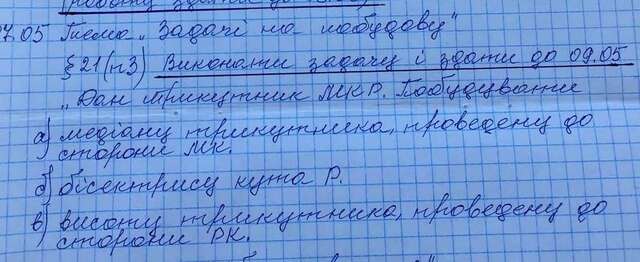 7.05 Тема „Задачі на побудову"
§21(п3) Виконати задачу і здати до 09.05
„Дан трикутник МКР. Побудувати
а) медіану трикутника, проведену до
сторони МК.
б) бісектрису кута Р.
в) висоту трикутника, проведену до
сторони РК.